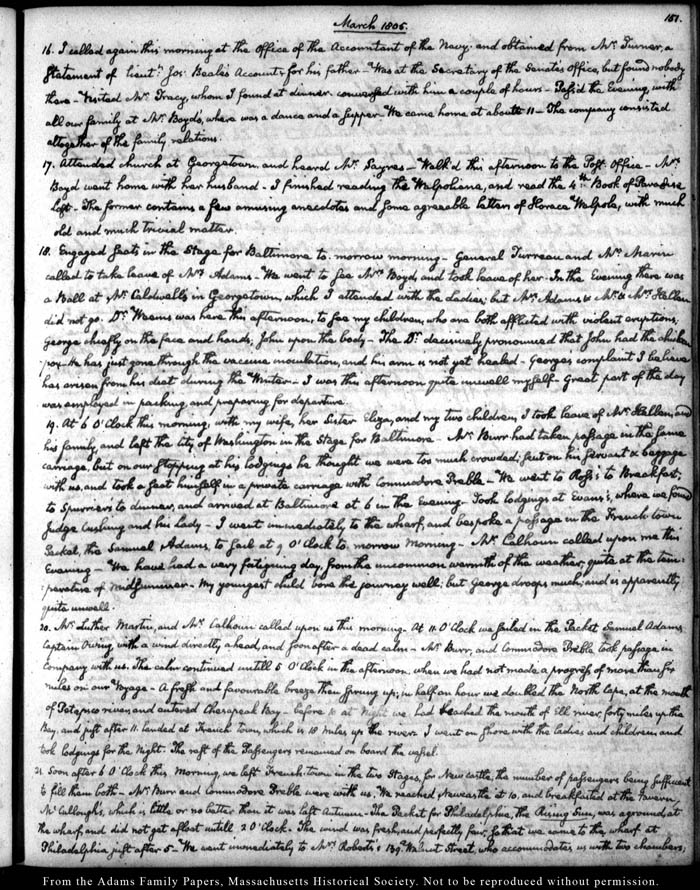 March 1805.
151.
16. I called again this morning at the Office of the Accountant of the Navy. and obtained from Mr. Turner, a
Statement of Lieut. Jos: Beale's Account, for his father. Was at the Secretary of the Senate's Office, but found nobody
there - Visited Mr. Tracy, whom I found at dinner. conversed with him a couple of hours - Pass'd the Evening, with
all our family at Mr. Boyd's, where was a dance and a supper. We came home at about 11 - The company consisted
altogether of the family relations.
17. Attended church at Georgetown, and heard Mr. Sayres - Walk'd this afternoon to the Post-Office - Mrs.
Boyd went home with her husband - I finished reading the Walpoliana, and read the 4th Book of Paradise
Lost - The former contains a few amusing anecdotes and some agreeable letters of Horace Walpole, with much
old and much trivial matter.
18. Engaged seats in the Stage for Baltimore to-morrow morning - General Turreau and Mr. Marin
called to take leave of Mrs. Adams. We went to see Mrs. Boyd, and took leave of her. In the Evening there was
a Ball at Mr. Caldwell's in Georgetown, which I attended with the Ladies; but Mrs. Adams & Mr. & Mrs. Hellen
did not go. Dr. Weems was here this afternoon, to see my children, who are both afflicted with violent eruptions,
George chiefly on the face and hands, John upon the body - The Dr. decisively pronounced that John had the chicken
pox. He has just gone through the vaccine inoculation, and his arm is not yet healed - George's complaint I believe
has arisen from his diet during the Winter - I was this afternoon quite unwell myself - Great part of the day
was employed in packing, and preparing for departure.
19. At 6 O'Clock this morning, with my wife, her Sister Eliza, and my two children, I took leave of Mr. Hellen, and
his family, and left the City of Washington in the Stage for Baltimore - Mr. Burr had taken passage in the same
carriage, but on our stopping at his lodgings he thought we were too much crowded; sent on his servant & baggage
with us, and took a seat himself in a private carriage with Commodore Preble. We went to Ross's to Breakfast;
to Spurrier's to dinner, and arrived at Baltimore at 6 in the Evening. Took lodgings at Evans's, where we found
Judge Cushing and his Lady - I went immediately to the wharf, and bespoke a passage in the French town
Packet, the Samuel Adams, to sail at 9 O'Clock to-morrow Morning - Mr. Calhoun called upon me this
Evening - We have had a very fatiguing day, from the uncommon warmth of the weather, quite at the tem-
perature of Midsummer - My youngest child bore the journey well; but George droops much, and is apparently
quite unwell.
20. Mr. Luther Martin, and Mr. Calhoun called upon us this morning. At 11. O'Clock we sailed in the Packet Samuel Adams,
Captain Owing, with a wind directly ahead, and soon after a dead calm - Mr. Burr, and Commodore Preble took passage in
Company with us. The calm continued untill 5 O'Clock in the afternoon, when we had not made a progress of more than six
miles on our Voyage - A fresh and favourable breeze then sprung up; in half an hour we doubled the North Cape, at the mouth
of Patapsco river, and entered Chesapeak Bay - before 10 at Night we had reached the mouth of Elk river, forty miles up the
Bay, and just after 11. landed at French town, which is 18 miles up the river. I went on shore with the ladies and children and
took lodgings for the Night. The rest of the Passengers remained on board the vessel.
21. Soon after 6 O'Clock this Morning, we left French-town in the two Stages, for Newcastle, the number of passengers being sufficient
to fill them both - Mr. Burr and Commodore Preble were with us. We reached Newcastle at 10, and breakfasted at the Tavern,
McCullough's, which is little or no better than it was last Autumn. The Packet for Philadelphia, the Rising Sun, was aground at
the wharf, and did not get afloat untill 2 O'Clock. The wind was fresh, and perfectly fair, so that we came to the wharf at
Philadelphia just after 5 - We went immediately to Mrs. Roberts's 139 Walnut Street, who accommodates us with two chambers,
From the Adams Family Papers, Massachusetts Historical Society. Not to be reproduced without permission.